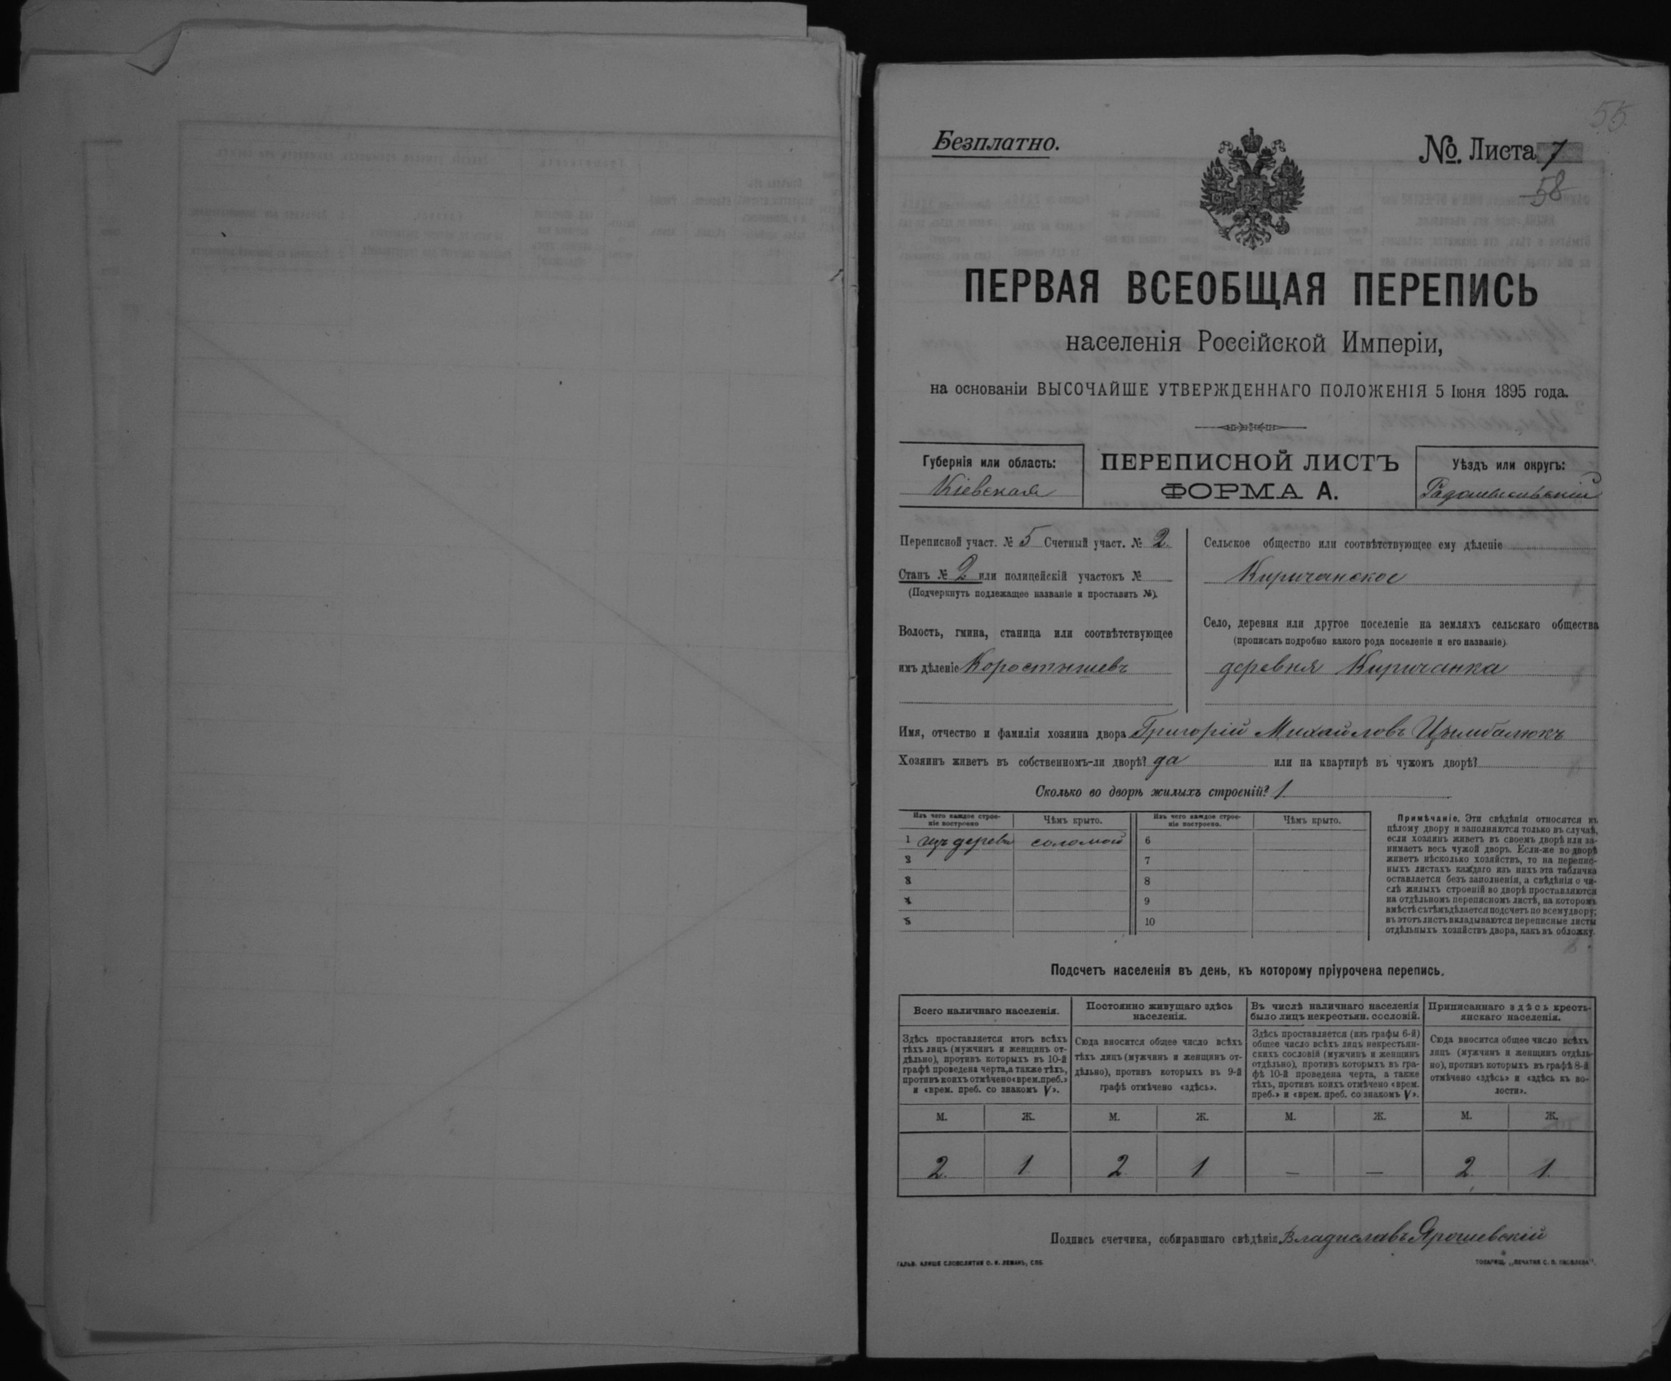 55
Безплатно.
№. Листа 7
58
ПЕРВАЯ ВСЕОБЩАЯ ПЕРЕПИСЬ
населенія Россійской Имперіи,
на основаніи ВЫСОЧАЙШЕ УТВЕРЖДЕННАГО ПОЛОЖЕНІЯ 5 Іюня 1895 года.
Губернія или область:
Кіевская
ПЕРЕПИСНОЙ ЛИСТЪ
ФОРМА А.
Уѣздъ или округъ:
Радомысльскій
Переписной участ. № 5 Счетный участ. № 2
Станъ № 2 или полицейскій участокъ №
(Подчеркнуть подлежащее названіе и проставить №).
Волость, гмина, станица или соотвѣтствующее
имъ дѣленіе Коростышевъ
Сельское общество или соотвѣтствующее ему дѣленіе
Киричанское
Село, деревня или другое поселеніе на земляхъ сельскаго общества
(прописать подробно какого рода поселеніе и его названіе)
деревня Киричанка
Имя, отчество и фамилія хозяина двора Григорій Михайловъ Цымбалюкъ
Хозяинъ живетъ въ собственномъ-ли дворѣ? да или на квартирѣ въ чужомъ дворѣ?
Сколько во дворѣ жилыхъ строеній? 1
Изъ чего каждое строе-
ніе построено
Чѣмъ крыто.
Изъ чего каждое строе-
ніе построено.
Чѣмъ крыто.
1 изъ дерева соломой 6
2 7
3 8
4 9
5 10
Примѣчаніе. Эти свѣдѣнія относятся къ
цѣлому двору и заполняются только въ случаѣ,
если хозяинъ живетъ въ своемъ дворѣ или за-
нимаетъ весь чужой дворъ. Если-же во дворѣ
живетъ нѣсколько хозяйствъ, то на перепис-
ныхъ листахъ каждаго изъ нихъ эта табличка
оставляется безъ заполненія, а свѣдѣнія о чи-
слѣ жилыхъ строеній во дворѣ проставляются
на отдѣльномъ переписномъ листѣ, на которомъ
вмѣстѣ съ тѣмъ дѣлается подсчетъ по всему двору;
въ этотъ листъ вкладываются переписные листы
отдѣльныхъ хозяйствъ двора, какъ въ обложку.
Подсчетъ населенія въ день, къ которому пріурочена перепись.
Всего наличнаго населенія.
Здѣсь проставляется итогъ всѣхъ
тѣхъ лицъ (мужчинъ и женщинъ от-
дѣльно), противъ которыхъ въ 10-й
графѣ проведена черта, а также тѣхъ,
противъ коихъ отмѣчено «врем. преб.»
и «врем. преб. со знакомъ V».
Постоянно живущаго здѣсь
населенія.
Сюда вносится общее число всѣхъ
тѣхъ лицъ (мужчинъ и женщинъ от-
дѣльно), противъ которыхъ въ 9-й
графѣ отмѣчено «здѣсь».
Въ числѣ наличнаго населенія
было лицъ некрестьян. сословій.
Здѣсь проставляется (изъ графы 6-й)
общее число всѣхъ лицъ некрестьян-
скихъ сословій (мужчинъ и женщинъ
отдѣльно), противъ которыхъ въ гра-
фѣ 10-й проведена черта, а также
тѣхъ, противъ коихъ отмѣчено «врем.
преб.» и «врем. преб. со знакомъ V».
Приписаннаго здѣсь кресть-
янскаго населенія.
Сюда вносится общее число всѣхъ
лицъ (мужчинъ и женщинъ отдѣль-
но), противъ которыхъ въ графѣ 8-й
отмѣчено «здѣсь» и «здѣсь въ во-
лости».
М. Ж. М. Ж. М. Ж. М. Ж.
2 1 2 1 — — 2 1
Подпись счетчика, собиравшаго свѣдѣнія Владиславъ Ярошевскій
ГАЛЬВ. КЛИШЕ СЛОВОЛИТНИ О. И. ЛЕМАНЪ, СПБ.
ТОВАРИЩ. „ПЕЧАТНЯ С. П. ЯКОВЛЕВА".